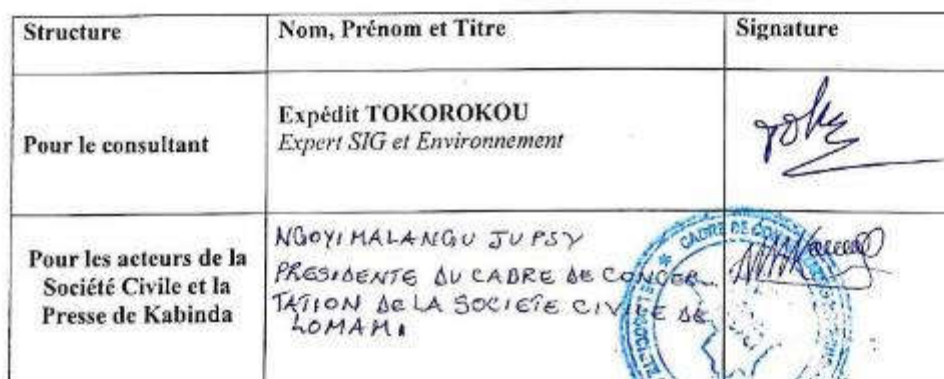 Structure
Nom, Prénom et Titre
Signature
Pour le consultant
Expédit TOKOROKOU
Expert SIG et Environnement
Pour les acteurs de la
Société Civile et la
Presse de Kabinda
NGOYI MALANGU JUPSY
PRESIDENTE DU CADRE DE CONCER_
TATION DE LA SOCIETE CIVILE DE
LOMAMI
CADRE DE CON